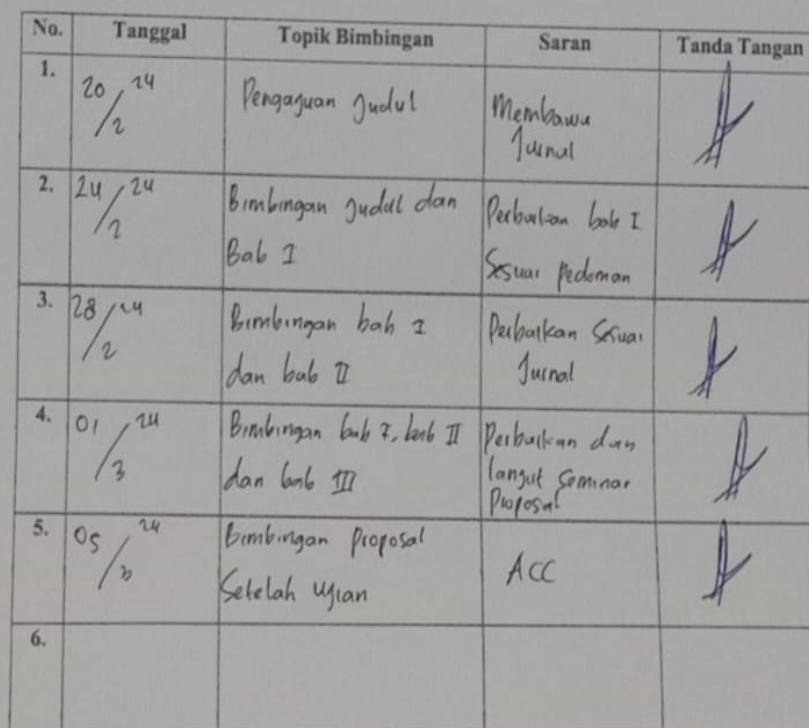 No. Tanggal Topik Bimbingan Saran Tanda Tangan
1. 20/2 24 Pengajuan Judul Membawa
Jurnal
2. 24/2 24 Bimbingan Judul dan Perbaikan bab I
Bab I Sesuai Pedoman
3. 28/2 24 Bimbingan bab I Perbaikan Sesuai
dan bab II Jurnal
4. 01/3 24 Bimbingan bab I, bab II Perbaikan dan
dan bab III langut Seminar
Proposal
5. 05/3 24 Bimbingan Proposal ACC
Setelah Ujian
6.